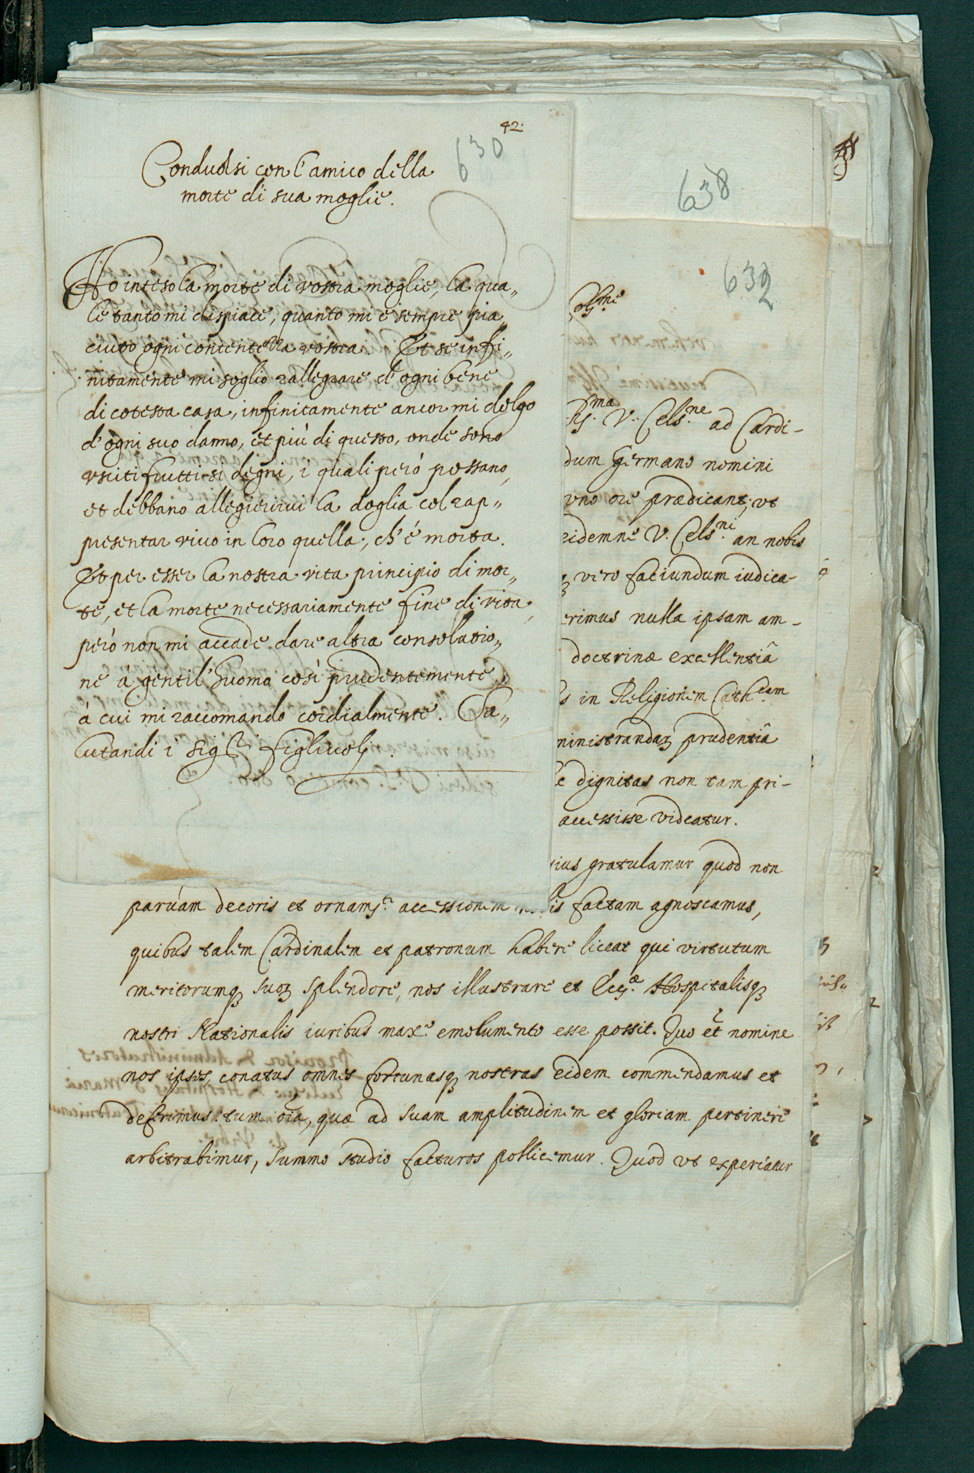 42.
630
Conduolsi con l'amico della
morte di sua moglie.
Ho inteso la morte di vostra moglie, la qua„
le tanto mi dispiace, quanto mi è sempre pia
ciuto ogni contentezza vostra. Et se infi„
nitamente mi soglio rallegrare d'ogni bene
di cotesta casa, infinitamente ancor mi dolgo
d'ogni suo danno, et più di questo, onde sono
vsciti frutti si degni, i quali però possano,
et debbano alleggierirui la doglia col rap„
presentar viuo in loro quella, ch'é morta.
Et per esser la nostra vita principio di mor„
te, et la morte necessariamente fine di vita,
però non mi accade dare altra consolatio„
ne á gentil'huomo così prudentemente,
à cui mi raccomando cordialmente. Sa„
lutandi i sig.ri figliuoli.
638
632
V. Cels.ne ad Cardi-
dum Germano nomini
vno ore prædicant, vt
eidemne V. Cels.ni an nobis
vero faciundum iudica-
erimus nulla ipsam am-
doctrinæ excellentiâ
s in Religionem Cath.cam
ministrandaq prudentiâ
dignitas non tam pri-
accessisse videatur.
ius gratulamur quod non
paruam decoris et ornam.ti accessionem factam agnoscamus,
quibus talem Cardinalem et patronum habere liceat qui virtutum
meritorumq suoq splendore, nos illustrare et Hospitalisq
nostri Nationalis iuribus max.e emolumento esse possit. Quo et nomine
nos ipsos, conatus omnes fortunasq nostras eidem commendamus et
deferimus: tum oia, quæ ad suam amplitudinem et gloriam pertinere
arbitrabimur, summo studio facturos pollicemur. Quod vt experiatur